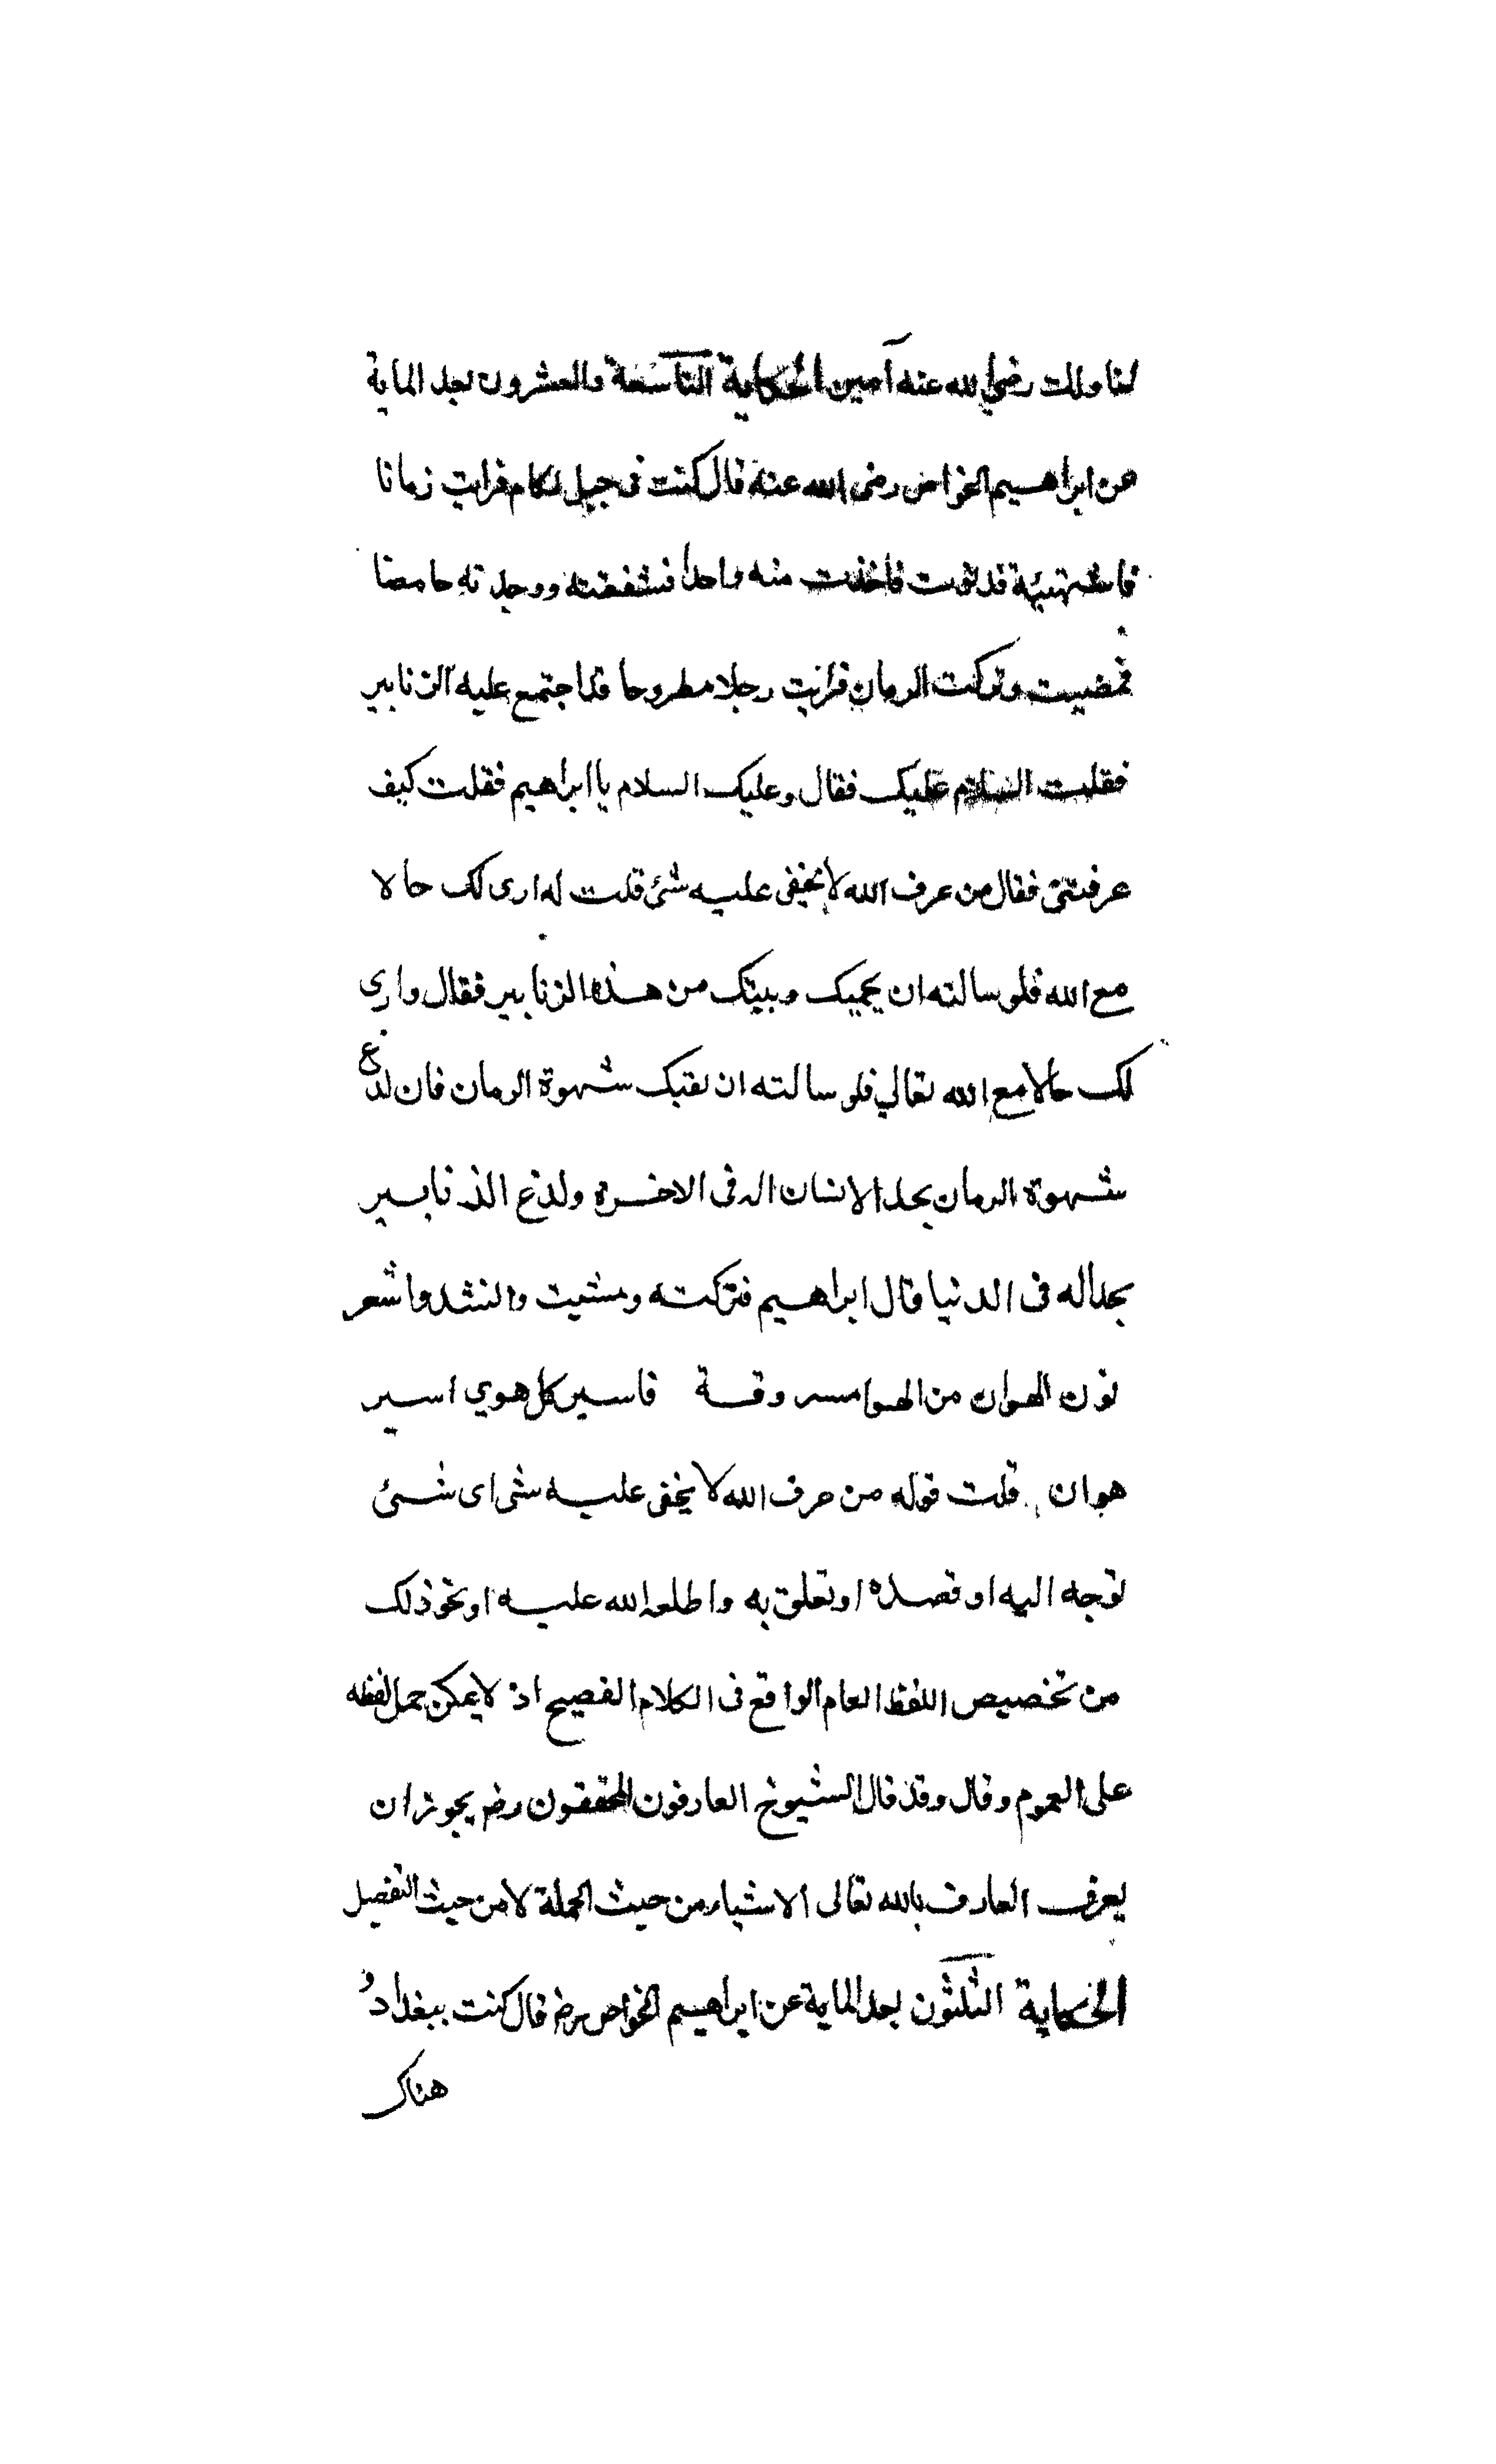 لنا ولك رضي الله عنه آمين الحكاية التاسعة والعشرون بعد الماية
عن ابراهيم الخواص رضى الله عنه قال كنت فى جبل لكام فرايت زمانا
فاشتهيته قدنوت فاخذت منه واحدا فشققته ووجدته حامضا
فمضيت وتركت الرمان فرايت رجلا مطروحا قد اجتمع عليه الزنابير
فقلت السلام عليك فقال وعليك السلام يا ابراهيم فقلت كيف
عرفتنى فقال من عرف الله لا يخفى عليه شئ قلت له ارى لك حالا
مع الله فلو سالته ان يحميك وبيتك من هذه الزنابير فقال وارى
لك حالا مع الله تعالي فلو سالته ان يقيك شهوة الرمان فان لدغ
شهوة الرمان يجد الانسان اله فى الاخرة ولدغ الذنابير
يجد اله فى الدنيا قال ابراهيم فتركته ومشيت وانشدوا شعر
نون الهوان من الهوا مسروقة فاسير كل هوي اسير
هوان قلت قوله من عرف الله لا يخفى عليه شى اى شئ
توجه اليه او قصده او تعلق به واطلعه الله عليه او نحو ذلك
من تخصيص اللفظ العام الواقع فى الكلام الفصيح اذ لا يمكن حمل لفظه
على العموم وقال وقد قال الشيوخ العارفون المحققون رض يجوز ان
يعرف العارف بالله تعالى الاشياء من حيث الجملة لا من حيث التفصيل
الحكاية الثلثون بعد الماية عن ابراهيم الخواص رض قال كنت ببغداد و
هناك